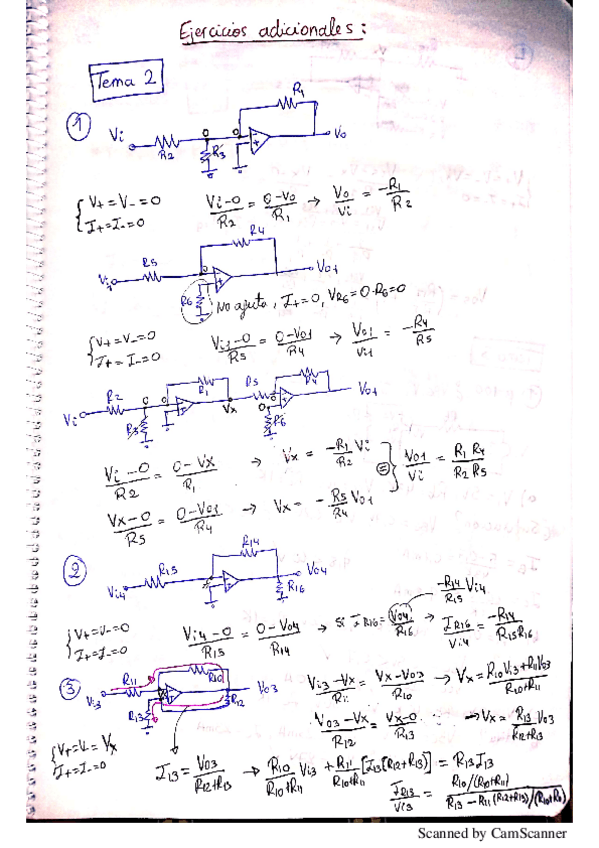 Ejercicios adicionales:
Tema 2
1
Vi R2 0 R3 0 R1 Vo
{ V+ = V- = 0
I+ = I- = 0
Vi-0/R2 = 0-Vo/R1 → Vo/Vi = -R1/R2
Vi1 R5 0 R4 Vo1
R6 No afecta, I+=0, VR6=0·R6=0
{ V+ = V- = 0
I+ = I- = 0
Vi1-0/R5 = 0-Vo1/R4 → Vo1/Vi1 = -R4/R5
Vi R2 0 R3 0 R1 Vx R5 0 R6 R4 Vo1
Vi-0/R2 = 0-Vx/R1 → Vx = -R1/R2 Vi
Vx-0/R5 = 0-Vo1/R4 → Vx = -R5/R4 Vo1
} Vo1/Vi = R1 R4/R2 R5
2
Vi4 R15 R14 Vo4 R16
{ V+ = V- = 0
I+ = I- = 0
Vi4-0/R15 = 0-Vo4/R14 → Si IR16 = Vo4/R16 → IR16/Vi4 = -R14/R15R16
-R14/R15 Vi4
3
Vi3 R11 R10 Vo3 R12 R13
{ V+ = V- = Vx
I+ = I- = 0
Vi3-Vx/R11 = Vx-Vo3/R10 → Vx = R10Vi3+R11Vo3/R10+R11
Vo3-Vx/R12 = Vx-0/R13 → Vx = R13/R12+R13 Vo3
I13 = Vo3/R12+R13 → R10/R10+R11 Vi3 + R11/R10+R11 [I13(R12+R13)] = R13 I13
IR13/Vi3 = R10/(R10+R11)/R13-R11(R12+R13)/(R10+R11)
Scanned by CamScanner